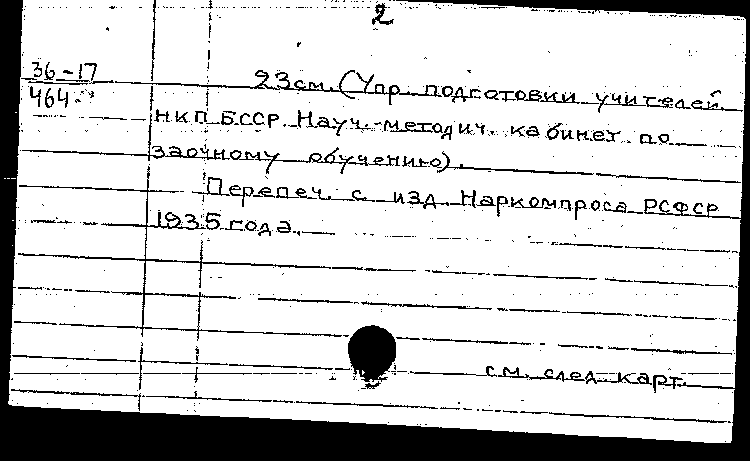 2
36-17
464
23см. (Упр. подготовки учителей
НКП БССР. Науч.-методич. кабинет по
заочному обучению).
Перепеч. с изд. Наркомпроса РСФСР
1935 года.
см. след. карт.